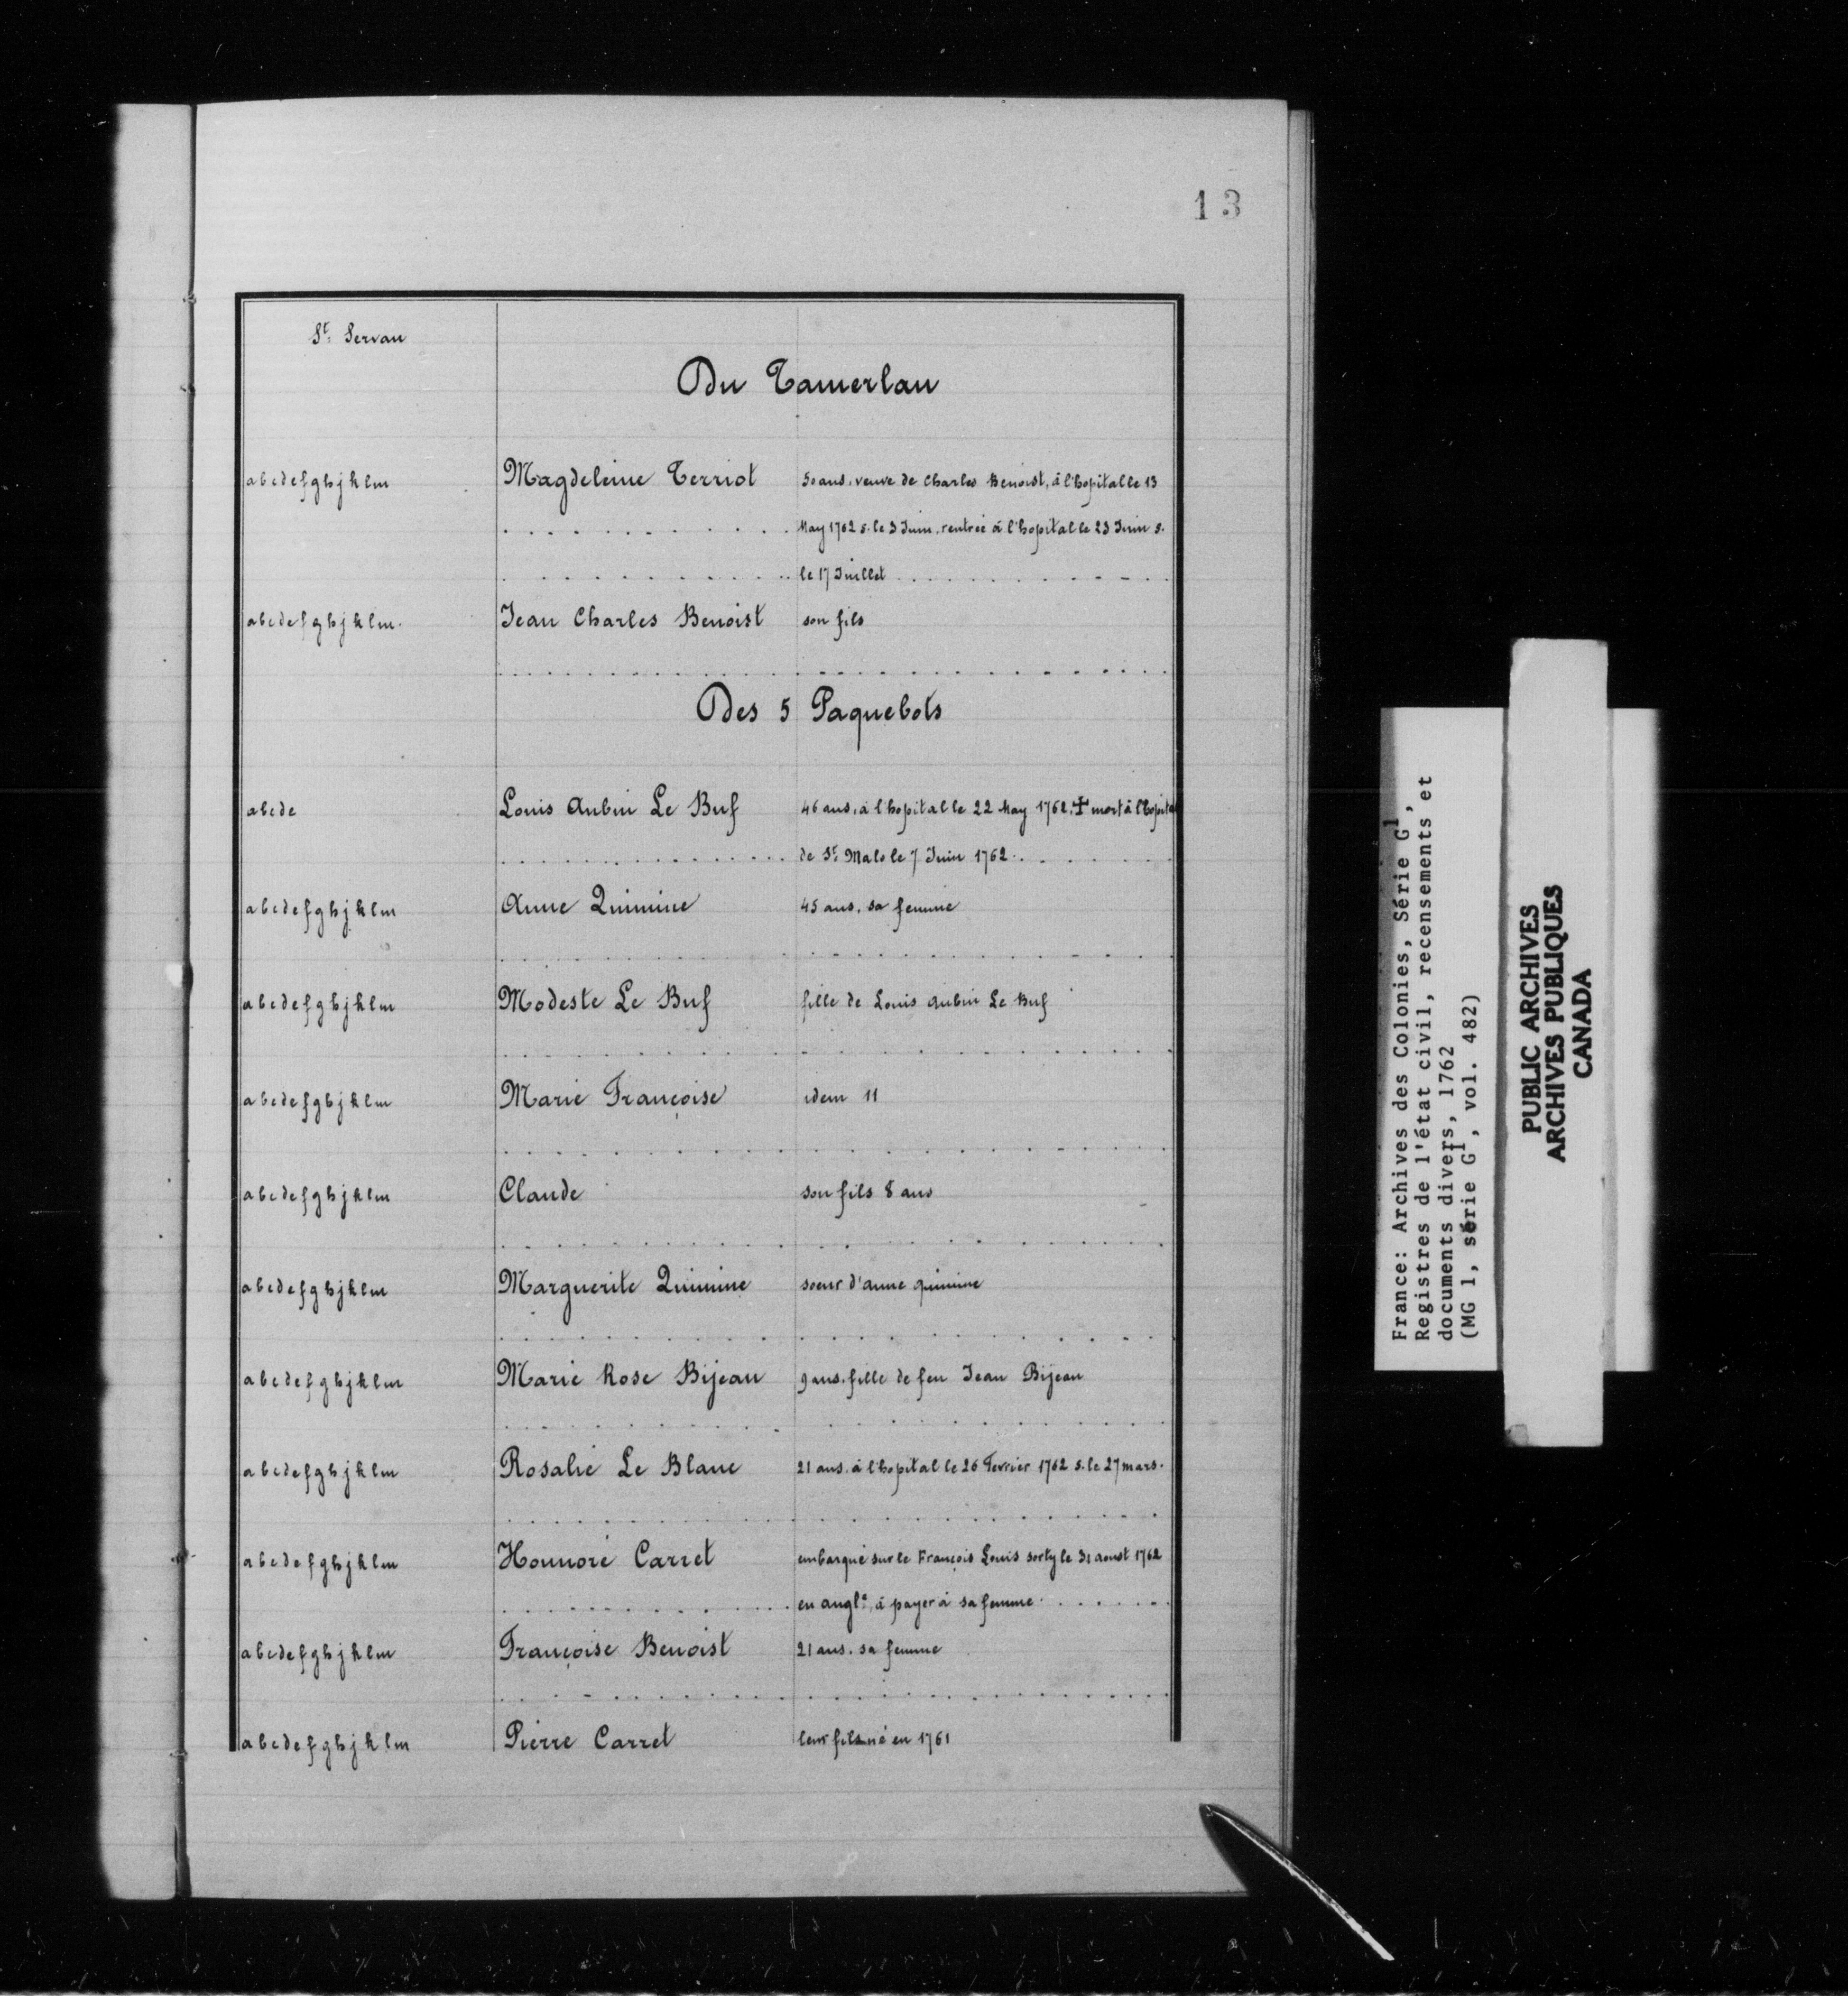 13
St. Servan
Du Tamerlan
abcdefghjklm Magdeleine Terriot 50 ans, veuve de Charles Benoist, à l'hopital le 13
May 1762 s. le 3 Juin, rentrée à l'hopital le 23 Juin s.
le 17 Juillet
abcdefghjklm. Jean Charles Benoist son fils
Des 5 Paquebots
abcde Louis Aubin Le Buf 46 ans, à l'hopital le 22 May 1762, ✝ mort à l'hopital
de St. Malo le 7 Juin 1762.
abcdefghjklm Anne Quimine 45 ans, sa femme
abcdefghjklm Modeste Le Buf fille de Louis Aubin Le Buf
abcdefghjklm Marie Françoise idem 11
abcdefghjklm Claude son fils 8 ans
abcdefghjklm Marguerite Quimine soeur d'anne quimine
abcdefghjklm Marie Rose Bijeau 9 ans, fille de feu Jean Bijeau
abcdefghjklm Rosalie Le Blanc 21 ans, à l'hopital le 26 Fevrier 1762 s. le 27 mars.
abcdefghjklm Honnoré Carret embarqué sur le François Louis sorty le 31 aoust 1762
en angl.e, à payer à sa femme.
abcdefghjklm Françoise Benoist 21 ans, sa femme
abcdefghjklm Pierre Carret leur fils né en 1761
France: Archives des Colonies, Série G1,
Registres de l'état civil, recensements et
documents divers, 1762
(MG 1, série G1, vol. 482)
PUBLIC ARCHIVES
ARCHIVES PUBLIQUES
CANADA